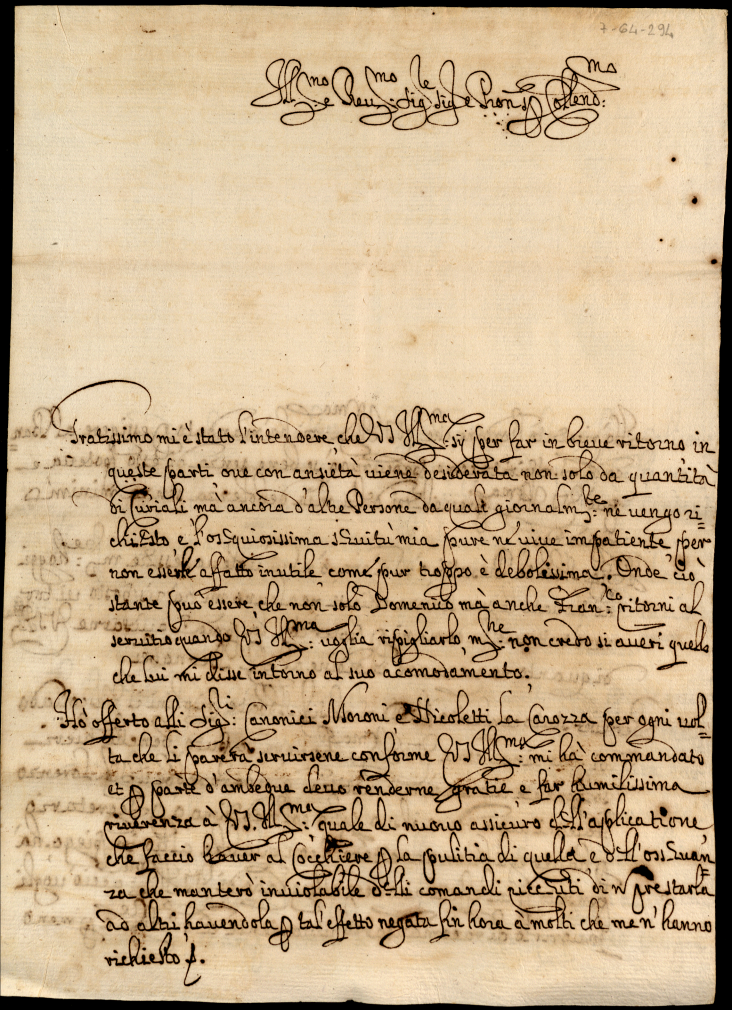 7-64-294
Ill:mo e Reu:mo Sig:re Sig:e Pron Colendmo:
Gratissimo mi è stato l'intendere, che VS Ill:ma sij per far in breue ritorno in
queste parti oue con ansietà uiene desiderata non solo da quantità
di Curiali mà ancora d'altre Persone da quali giornalm:te ne uengo ri=
chiesto e l'ossequiosissima seruitù mia pure ne uiue impatiente per
non essere affatto inutile come pur troppo è debolissima. Onde ciò
stante può essere, che non solo Domenico mà anche Fran:co ritorni al
seruitio quando VS Ill:ma uoglia ripigliarlo, m:he non credo si aueri quello
che lui mi disse intorno al suo acomodamento.
Hò offerto alli Sig:ri Canonici Moroni e Nicoletti la Carozza per ogni uol=
ta che li parerà seruirsene conforme VS Ill:ma mi hà commandato
et p parte d'ambeque deuo renderne gratie e far humilissima
riuerenza à VS. Ill:ma quale di nuouo assicuro dell'applicatione,
che faccio hauer al Cocchiere p la pulitia di quella e dell'osseruan=
za che manterò inuiolabile delli comandi riceuuti di n prestarla
ad altri hauendola p tal'effetto negata fin hora à molti che me n'hanno
richiesto.